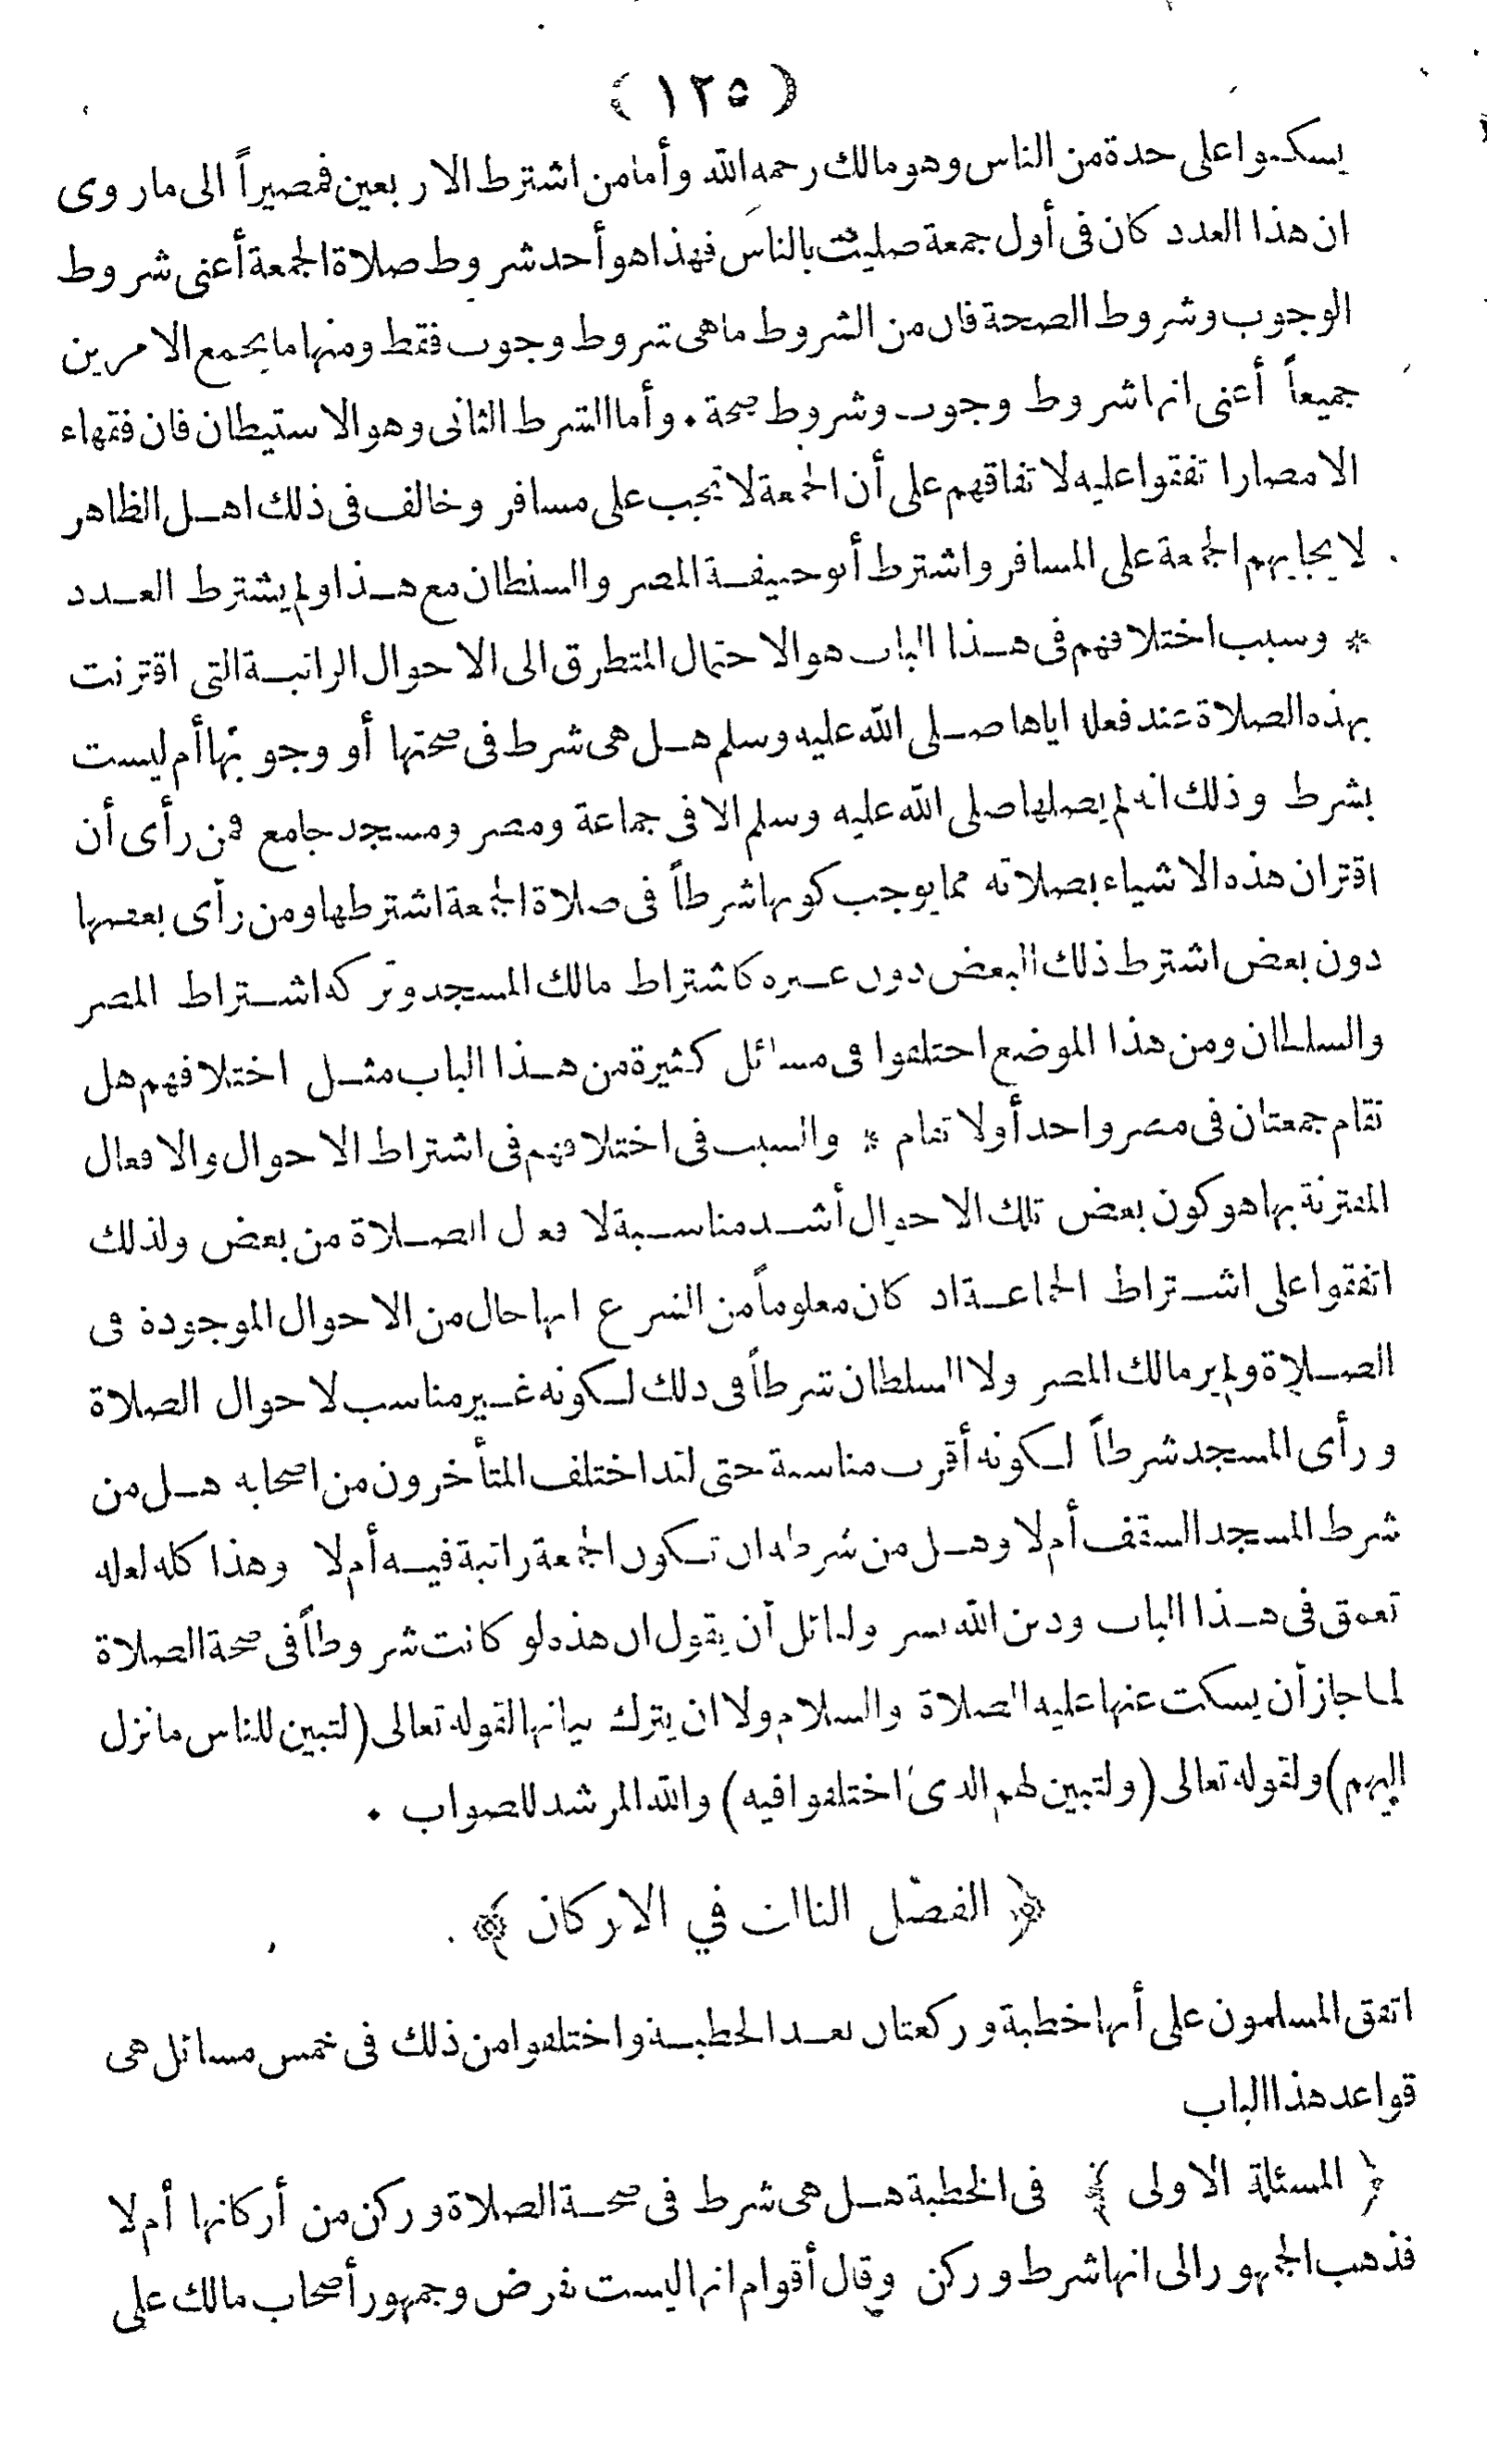 (١٢٥)
يسكنوا على حدة من الناس وهو مالك رحمه الله وأما من اشترط الاربعين فمصيراً الى ماروى
ان هذا العدد كان فى أول جمعة صليت بالناس فهذا هو أحد شروط صلاة الجمعة أعنى شروط
الوجوب وشروط الصحة فان من الشروط ما هى شروط وجوب فقط ومنها ما يجمع الامرين
جميعاً أعنى انها شروط وجوب وشروط صحة . وأما الشرط الثانى وهو الاستيطان فان فقهاء
الامصار اتفقوا عليه لاتفاقهم على أن الجمعة لا تجب على مسافر وخالف فى ذلك اهل الظاهر
لايجابهم الجمعة على المسافر واشترط أبو حنيفة المصر والسلطان مع هذا ولم يشترط العدد
* وسبب اختلافهم فى هذا الباب هو الاحتمال المتطرق الى الاحوال الراتبة التى اقترنت
بهذه الصلاة عند فعله اياها صلى الله عليه وسلم هل هى شرط فى صحتها أو وجوبها أم ليست
بشرط وذلك انه لم يصلها صلى الله عليه وسلم الا فى جماعة ومصر ومسجد جامع فمن رأى أن
اقتران هذه الاشياء بصلاته مما يوجب كونها شرطاً فى صلاة الجمعة اشترطها ومن رأى بعضها
دون بعض اشترط ذلك البعض دون غيره كاشتراط مالك المسجد وتركه اشتراط المصر
والسلطان ومن هذا الموضع اختلفوا فى مسائل كثيرة من هذا الباب مثل اختلافهم هل
تقام جمعتان فى مصر واحد أولا تقام * والسبب فى اختلافهم فى اشتراط الاحوال والافعال
المقترنة بها هو كون بعض تلك الاحوال أشد مناسبة لافعال الصلاة من بعض ولذلك
اتفقوا على اشتراط الجماعة اذ كان معلوماً من الشرع انها حال من الاحوال الموجودة فى
الصلاة ولم ير مالك المصر ولا السلطان شرطاً فى ذلك لكونه غير مناسب لاحوال الصلاة
ورأى المسجد شرطاً لكونه أقرب مناسبة حتى لقد اختلف المتأخرون من اصحابه هل من
شرط المسجد السقف أم لا وهل من شرطه ان تكون الجمعة راتبة فيه أم لا وهذا كله لعله
تعمق فى هذا الباب ودين الله يسر ولقائل أن يقول ان هذه لو كانت شروطاً فى صحة الصلاة
لما جاز أن يسكت عنها عليه الصلاة والسلام ولا ان يترك بيانها لقوله تعالى (لتبين للناس ما نزل
اليهم) ولقوله تعالى (ولتبين لهم الذى اختلفوا فيه) والله المرشد للصواب .
﴿ الفصل الثالث في الاركان ﴾
اتفق المسلمون على أنها خطبة وركعتان بعد الخطبة واختلفوا من ذلك فى خمس مسائل هى
قواعد هذا الباب
﴿ المسئلة الاولى ﴾ فى الخطبة هل هى شرط فى صحة الصلاة وركن من أركانها أم لا
فذهب الجمهور الى انها شرط وركن وقال أقوام انها ليست بفرض وجمهور أصحاب مالك على